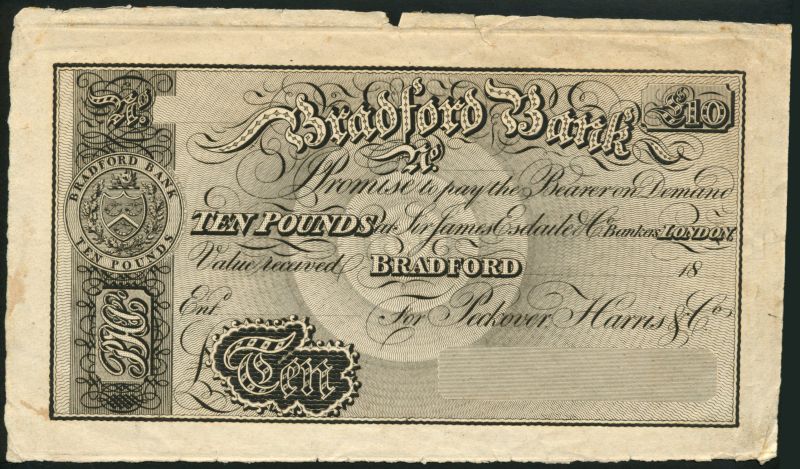 No.
Bradford Bank
£10
No.
I Promise to pay the Bearer on Demand
TEN POUNDS at Sir James Esdaile & Co. Bankers LONDON.
Value received BRADFORD 18
Entd.
For Peckover, Harris & Co.
£ Ten
BRADFORD BANK
TEN POUNDS
PH&C